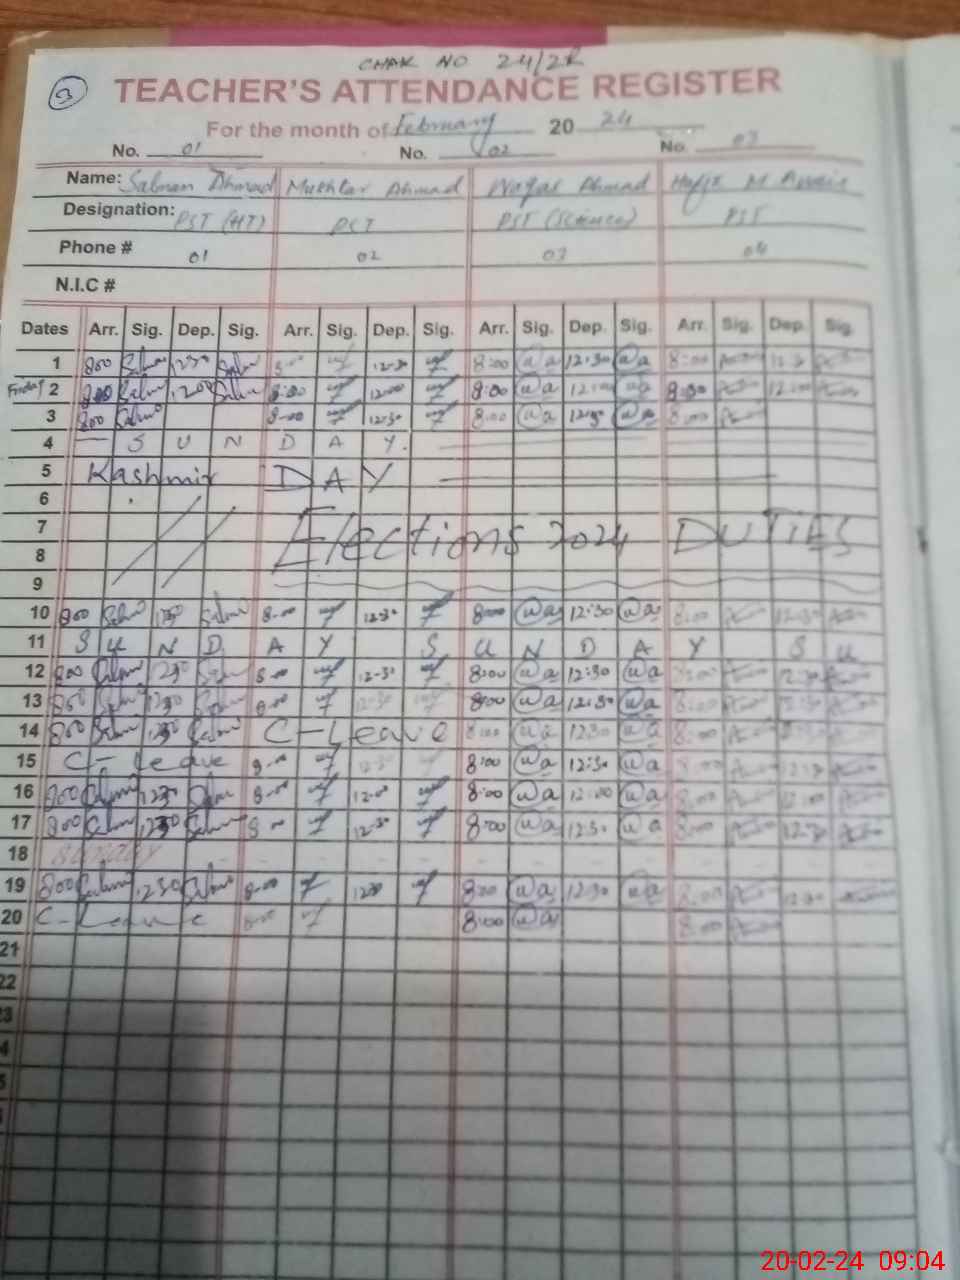 CHAK NO 24/2R
3
TEACHER'S ATTENDANCE REGISTER
For the month of February 20 24
No. 01 No. 02 No. 03
Name: Salman Ahmad Mukhtar Ahmad Waqar Ahmad Hafiz M Awais
Designation: PST (HT) PST PST (Science) PST
Phone # 01 02 03 04
N.I.C #
Dates Arr. Sig. Dep. Sig. Arr. Sig. Dep. Sig. Arr. Sig. Dep. Sig. Arr. Sig. Dep. Sig.
1 800 Salman 1230 Salman 8:00 12:30 8:00 wa 12:30 wa 8:00 12:30
Friday 2 800 Salman 1200 Salman 8:00 12:00 8:00 wa 12:00 wa 8:00 12:00
3 800 Salman 8:00 12:30 8:00 wa 12:30 wa 8:00
4 S U N D A Y.
5 Kashmir DAY
6
7 Elections 2024 DUTIES
8
9
10 800 Salman 1230 Salman 8:00 12:30 8:00 wa 12:30 wa 8:00 12:30
11 S U N D A Y S U N D A Y S U
12 800 Salman 1230 Salman 8:00 12:30 8:00 wa 12:30 wa 8:00 12:30
13 800 Salman 1230 Salman 8:00 12:30 8:00 wa 12:30 wa 8:00 12:30
14 800 Salman 1230 Salman C-Leave 8:00 wa 12:30 wa 8:00 12:30
15 C-Leave 8:00 12:30 8:00 wa 12:30 wa 8:00 12:30
16 800 Salman 1230 Salman 8:00 12:00 8:00 wa 12:00 wa 8:00 12:00
17 800 Salman 1230 Salman 8:00 12:30 8:00 wa 12:30 wa 8:00 12:30
18 SUNDAY
19 800 Salman 1230 Salman 8:00 1230 8:00 wa 12:30 wa 8:00 12:30
20 C-Leave 8:00 8:00 wa 8:00
21
22
23
4
5
20-02-24 09:04